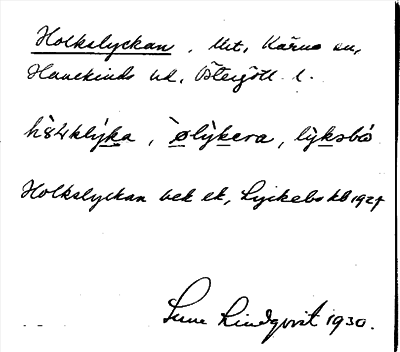 Holkslyckan, Utt. Kärna sn,
Hanekinds hd, Östergötl. l.
, ølỳkera, lỳksbo
Holkslyckan bek ek, Lyckebo kb 1927
Sune Lindqvist 1930.